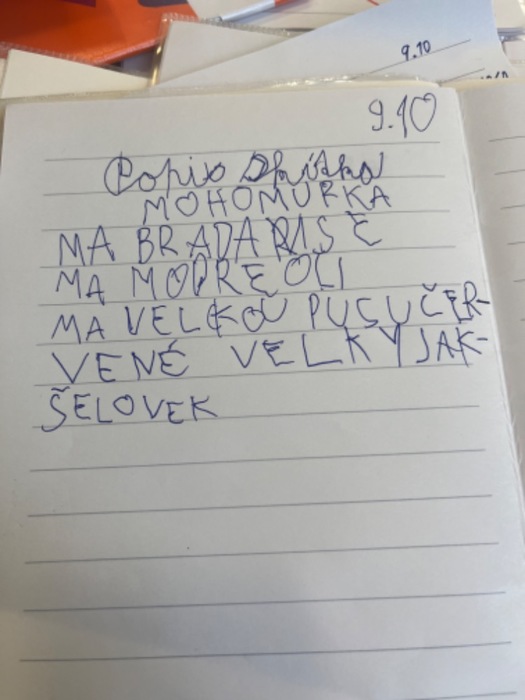 9.10
9.10
Popis Skřítka
MOHOMŮRKA
MA BRADARISE
MA MODRE OČI
MA VELKOU PUSU ČER-
VENÉ VELKÝ JAK-
ŠELOVEK